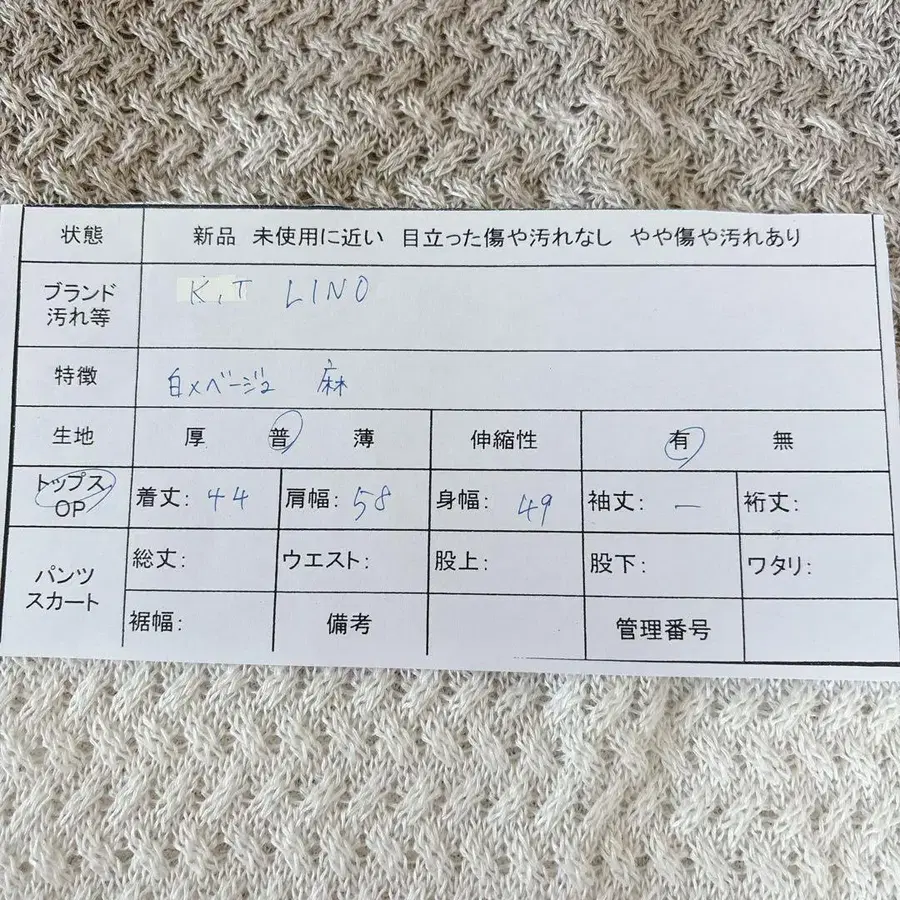 状態 新品 未使用に近い 目立った傷や汚れなし やや傷や汚れあり
ブランド K.T LINO
汚れ等
特徴 白×ベージュ 麻
生地 厚 普 薄 伸縮性 有 無
トップス OP 着丈: 44 肩幅: 58 身幅: 49 袖丈: — 裄丈:
パンツ スカート 総丈: ウエスト: 股上: 股下: ワタリ:
裾幅: 備考 管理番号